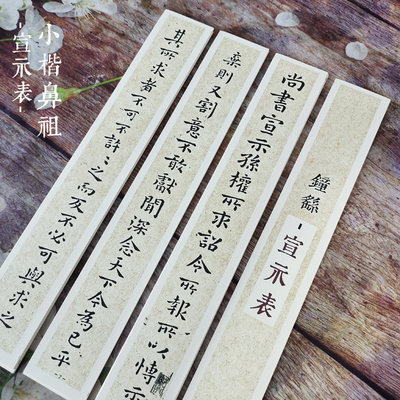 小楷鼻祖
-宣示表-
鍾繇
-宣示表
尚書宣示孫權所求詔令所報所以博示
棄則又割意不敢獻聞深念天下今為已平
其所求者不可不許〻之而反不必可與求之